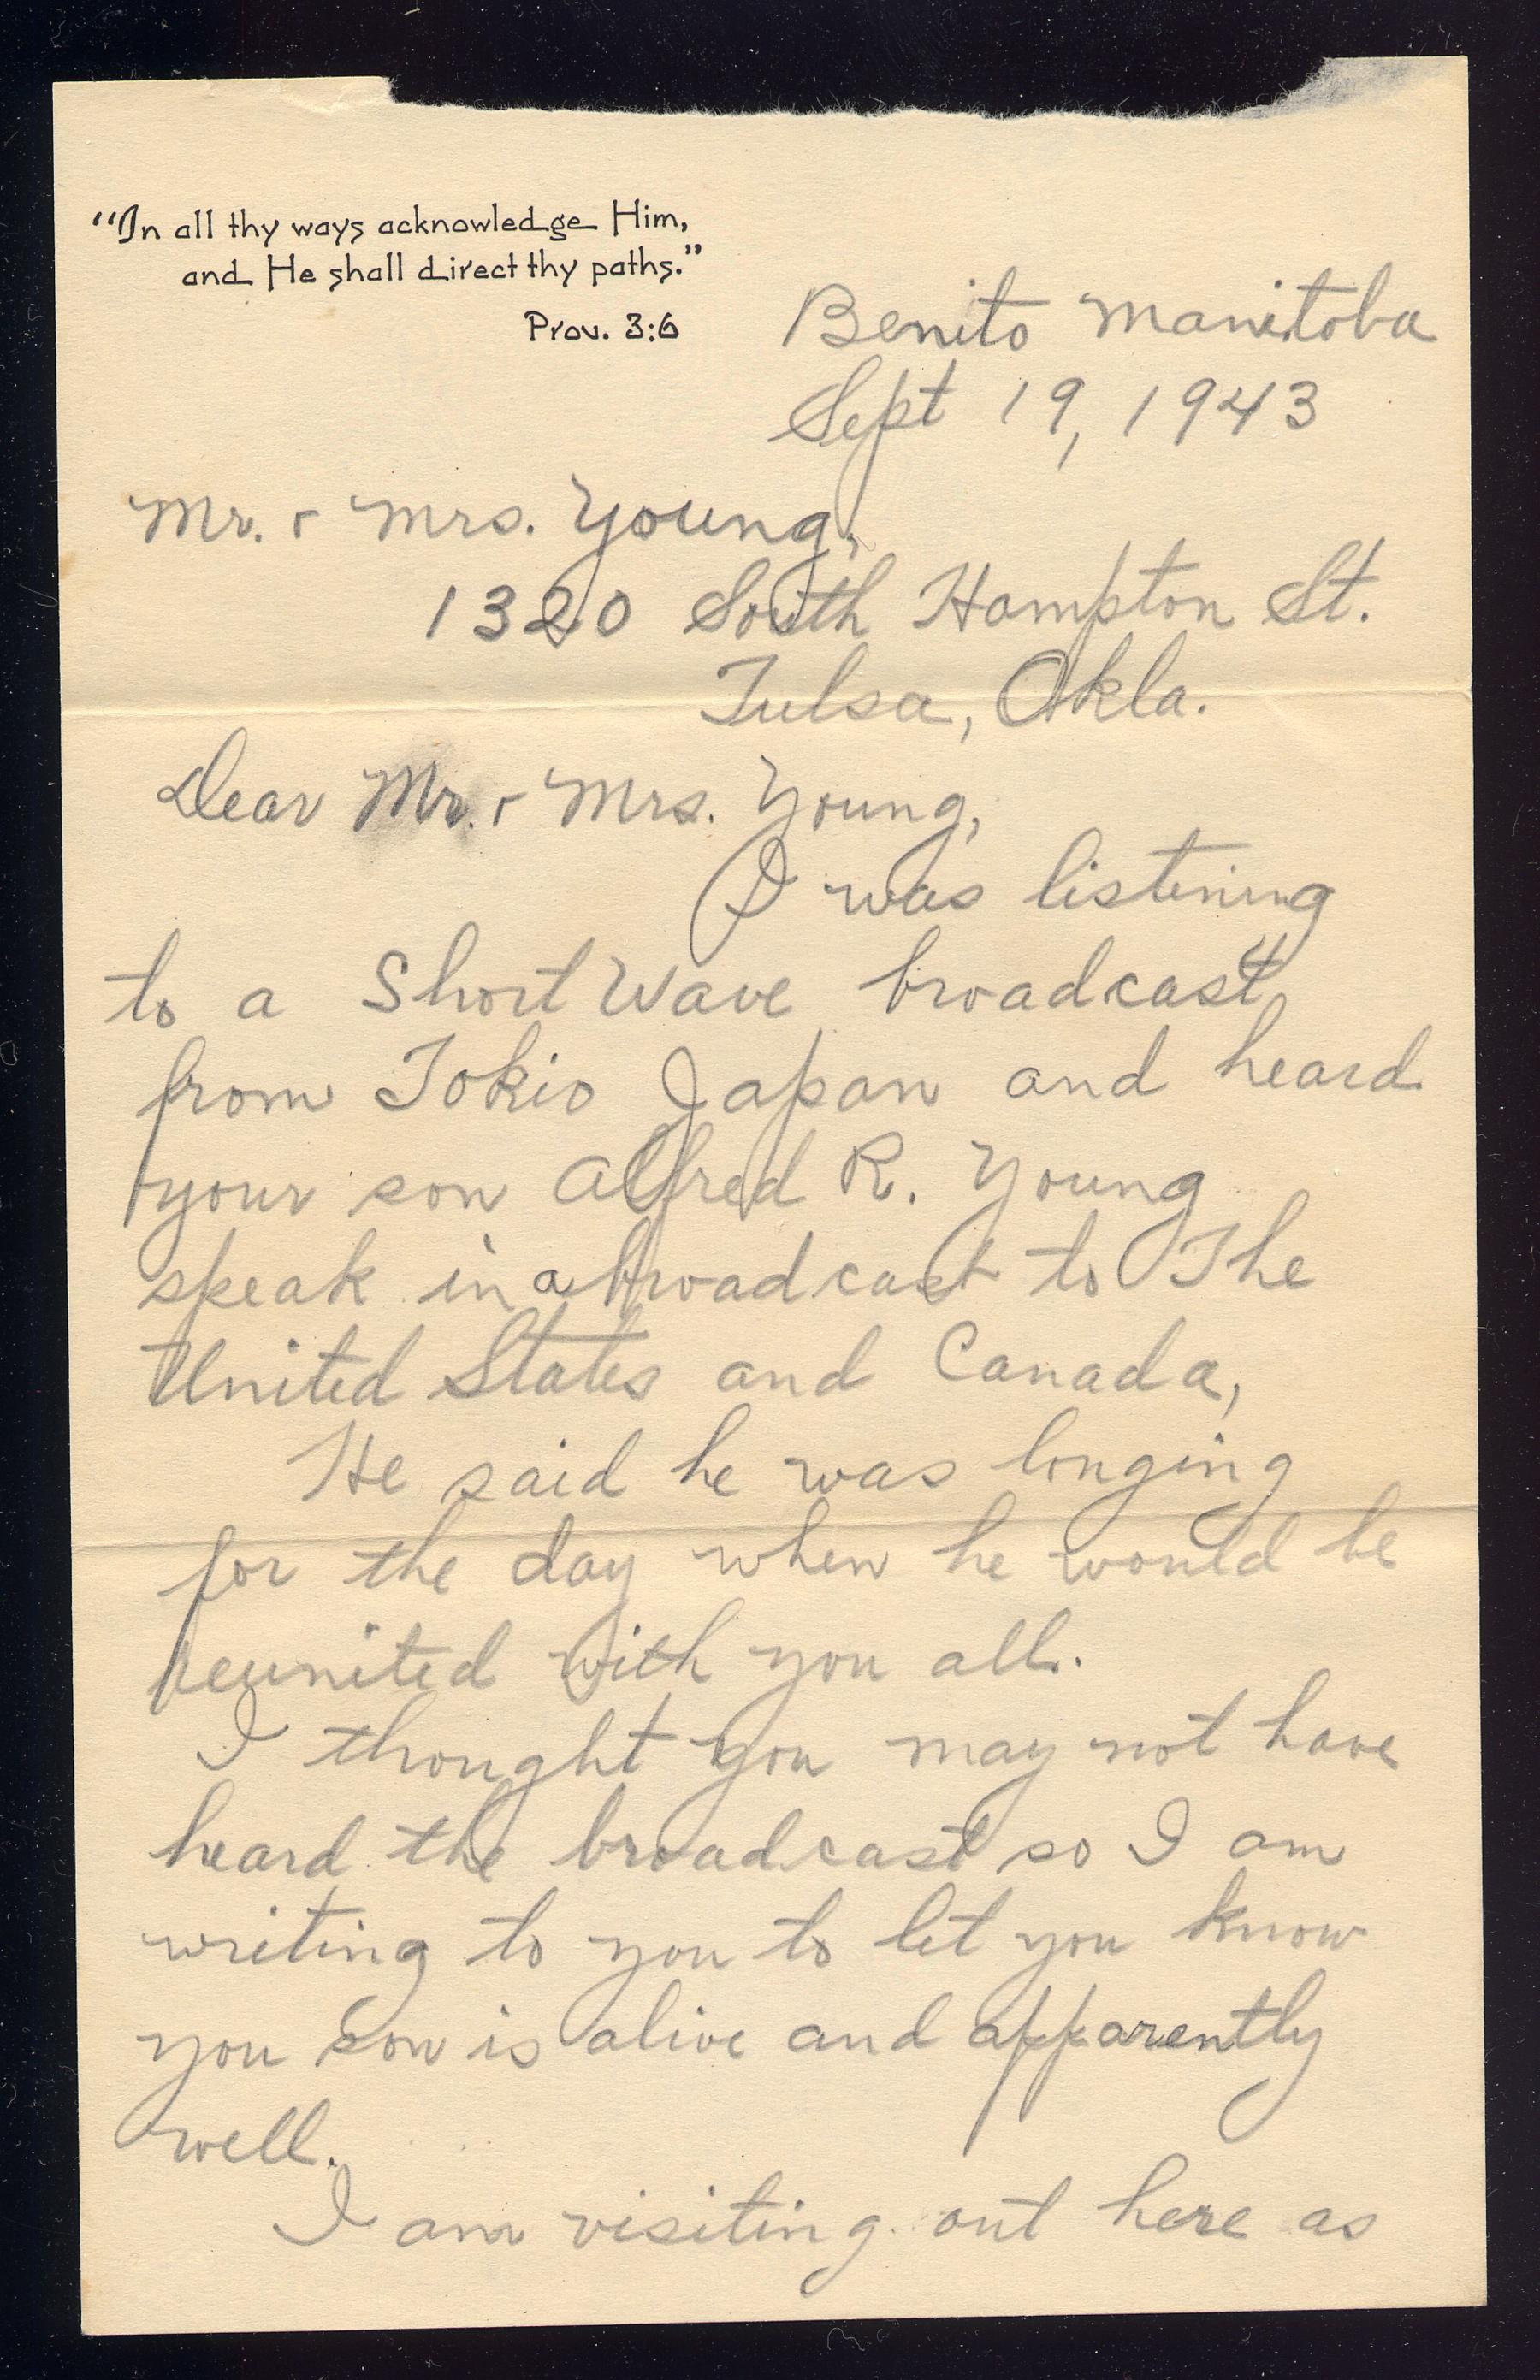 “In all thy ways acknowledge Him,
and He shall direct thy paths.”
Prov. 3:6
Benito Manitoba
Sept 19, 1943
Mr. & Mrs. Young,
1320 South Hampton St.
Tulsa, Okla.
Dear Mr. & Mrs. Young,
I was listening
to a Short Wave broadcast
from Tokio Japan and heard
your son Alfred R. Young
speak in a broadcast to The
United States and Canada,
He said he was longing
for the day when he would be
reunited with you all.
I thought you may not have
heard the broadcast so I am
writing to you to let you know
you son is alive and apparently
well.
I am visiting out here as